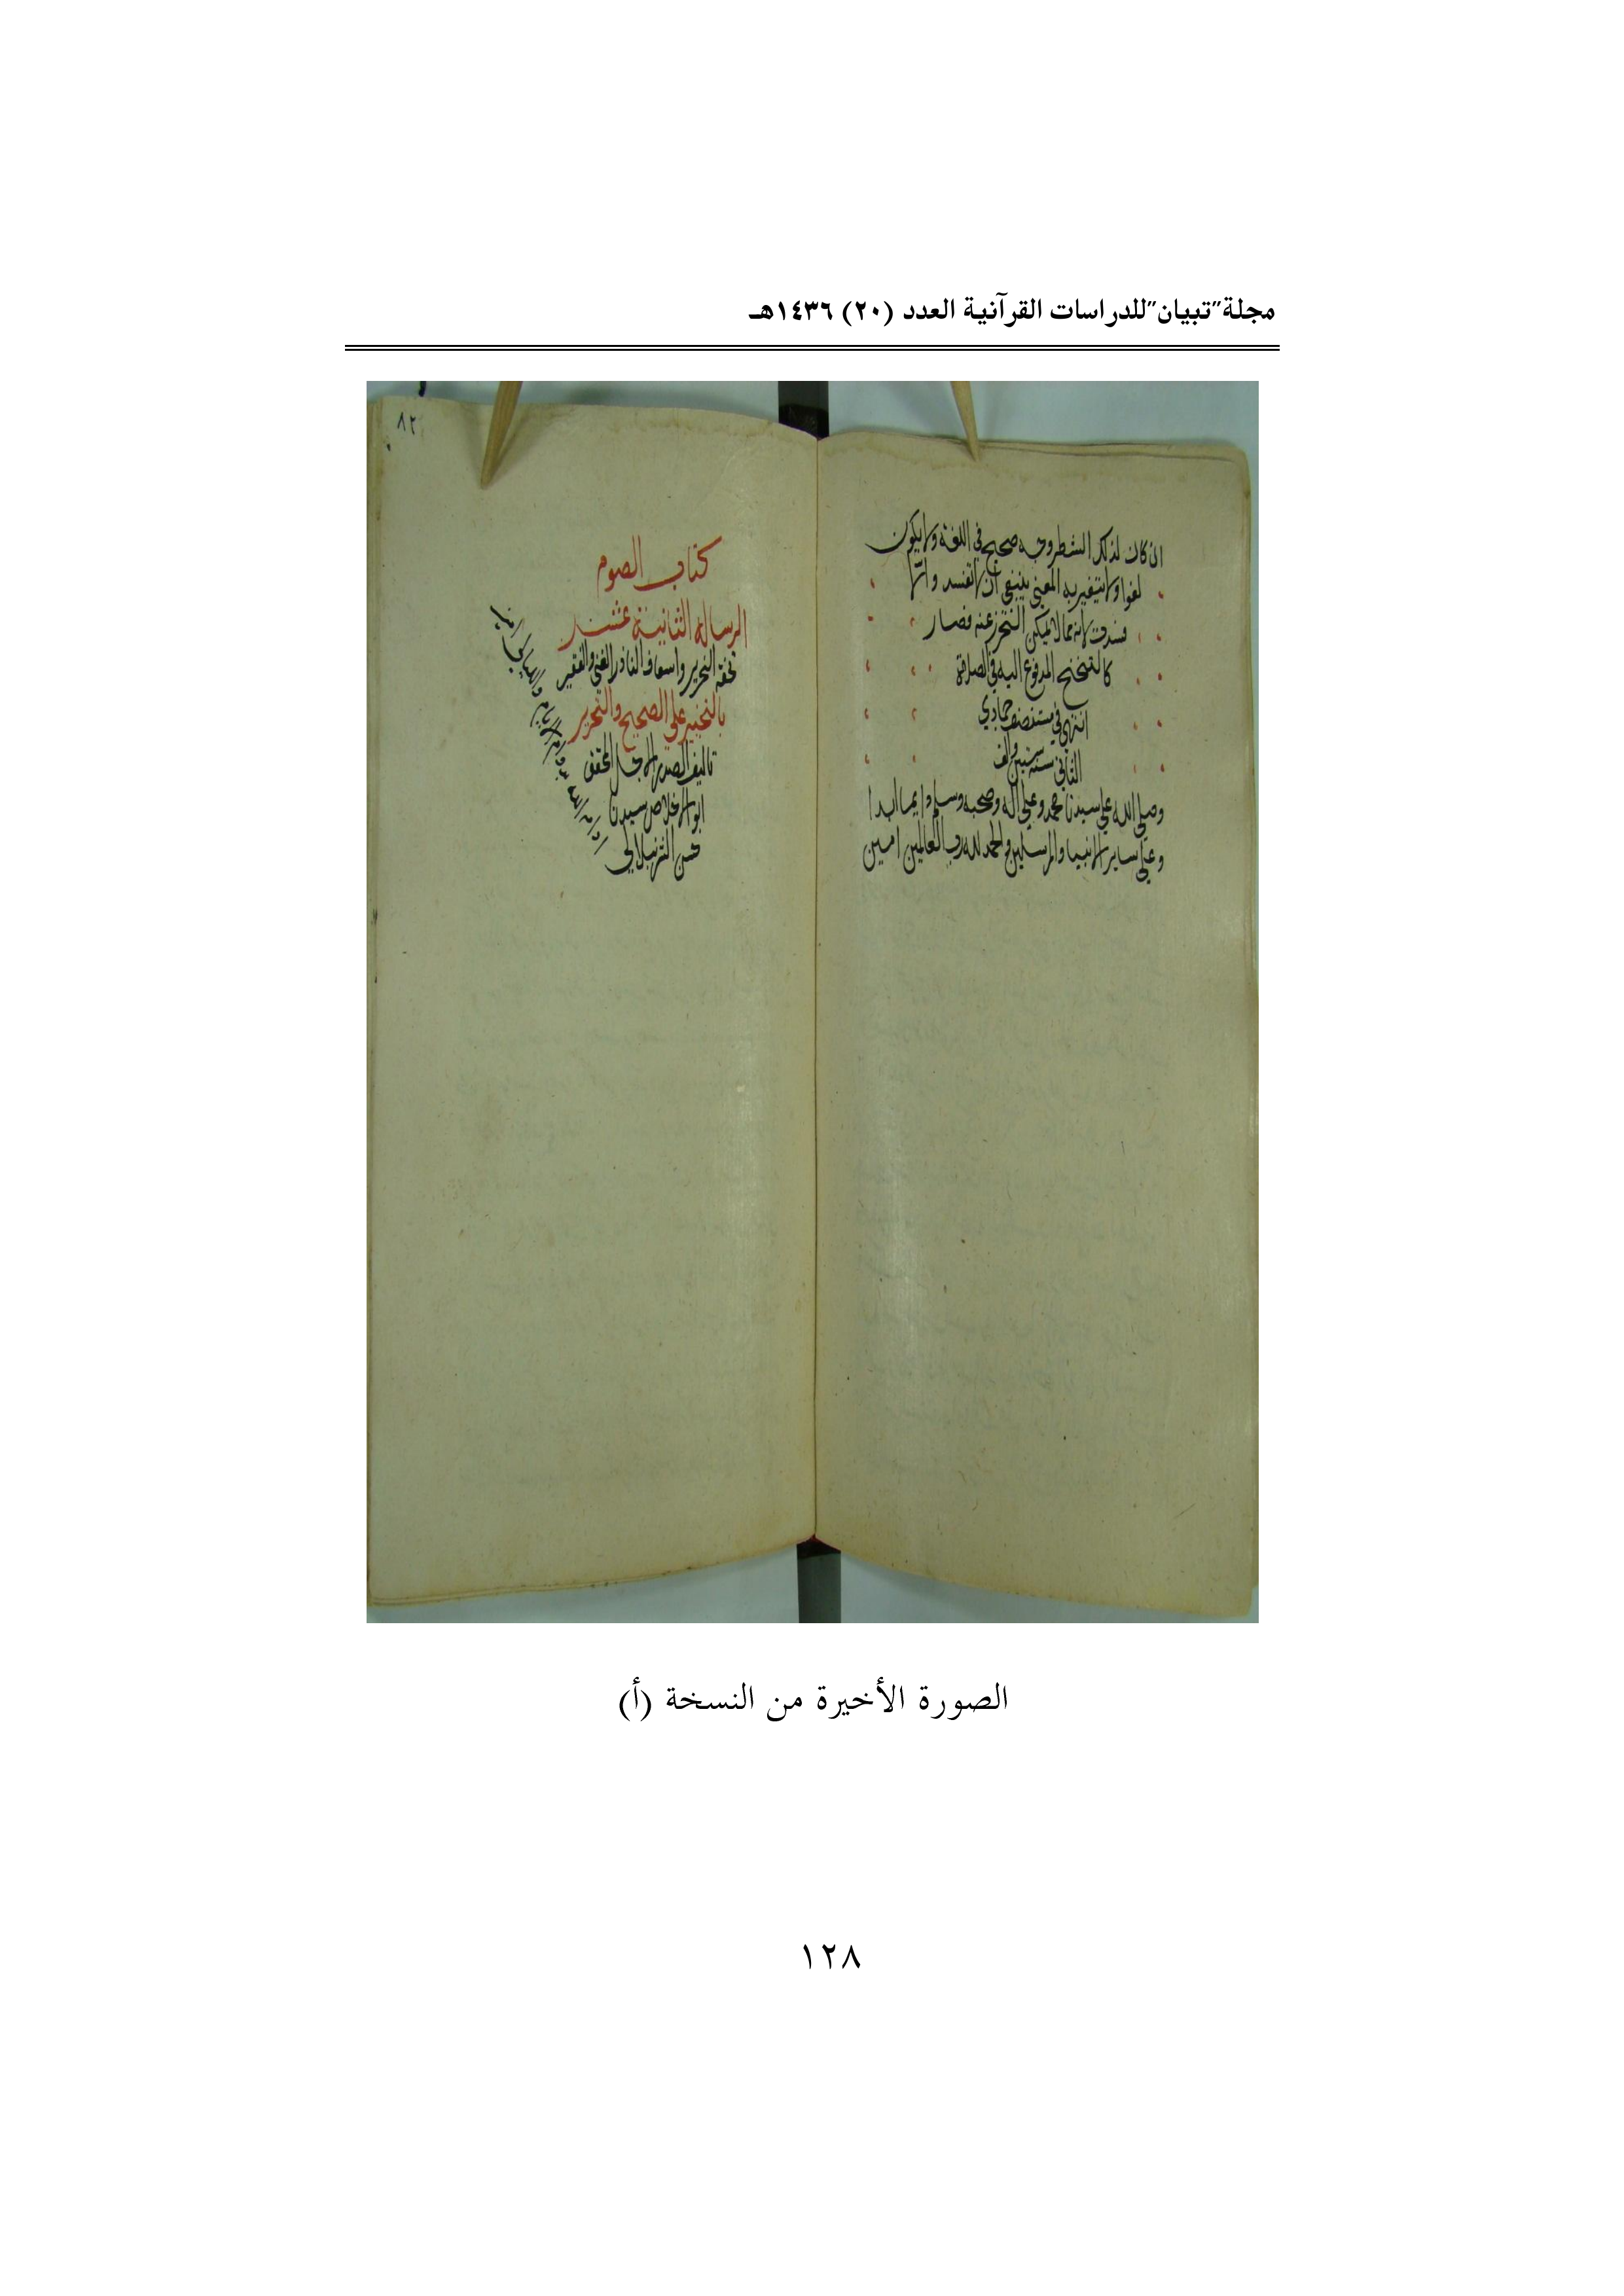 مجلة"تبيان"للدراسات القرآنية العدد (٢٠) ١٤٣٦هـ
ان كان لذلك الشطر وجه صحيح في اللغة ولا يكون
لغوا ولا يتغير به المعنى ينبغي ان لا تفسد وانما
فسدت لانه مما لا يمكن التحرز عنه فصار
كالتنحنح المدفوع اليه في الصلاة
انتهى في منتصف جمادي
الثاني سنة ستين والف
وصلى الله على سيدنا محمد وعلى اله وصحبه وسلم دايما ابدا
وعلى ساير الانبيا والمرسلين والحمد لله رب العالمين امين
٨٢
كتاب الصوم
الرسالة الثانية عشر
تحفة التحرير واسعاف الناذر الغني والفقير
بالتخيير على الصحيح والتحرير
تاليف الصدر الاجل المحقق
ابو الاخلاص سيدنا
حسن الشرنبلالي
الصورة الأخيرة من النسخة (أ)
١٢٨